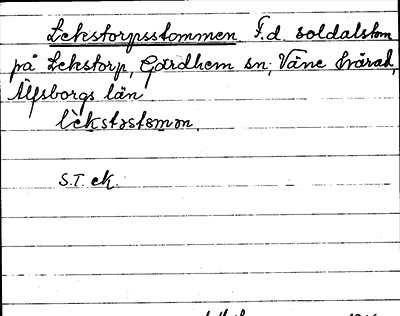 Lekstorpsstommen F.d. soldatstom
på Lekstorp, Gärdhem sn, Väne härad,
Älvsborgs län
lèkstəstəmən.
S.T. ek.